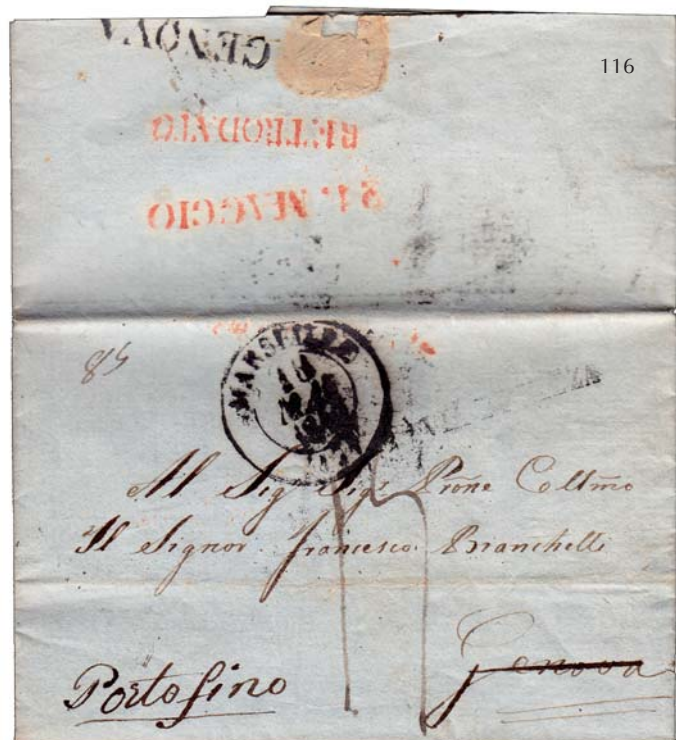 GENOVA
116
RETRODATO
21. MAGGIO
MARSEILLE
Al Sig Sig. Prone Colt̃mo
Il Signor francesco Bianchelli
Genova
Portofino